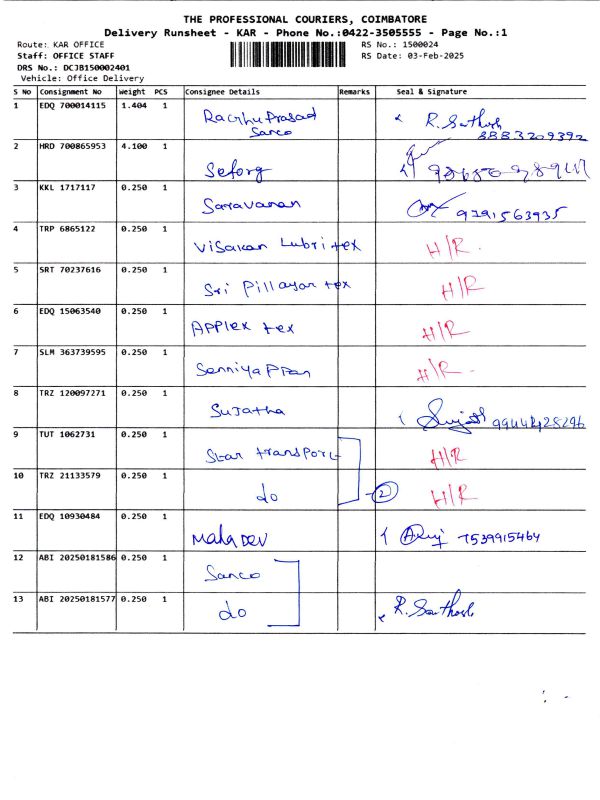 THE PROFESSIONAL COURIERS, COIMBATORE
Delivery Runsheet - KAR - Phone No.:0422-3505555 - Page No.:1
Route: KAR OFFICE
RS No.: 1500024
Staff: OFFICE STAFF
RS Date: 03-Feb-2025
DRS No.: DCJB150002401
Vehicle: Office Delivery
S No Consignment No Weight PCS Consignee Details Remarks Seal & Signature
1 EDQ 700014115 1.404 1 Raghu Prasad R. Santhosh
Sanco 8883209392
2 HRD 700865953 4.100 1 Seforg
3 KKL 1717117 0.250 1 Saravanan 9291563935
4 TRP 6865122 0.250 1 Visakan Lubri tex H/R.
5 SRT 70237616 0.250 1 Sri Pillayar tex H/R
6 EDQ 15063540 0.250 1 Applex tex H/R
7 SLM 363739595 0.250 1 H/R.
8 TRZ 120097271 0.250 1 Sujatha Sujath 9944428296
9 TUT 1062731 0.250 1 Star transport H/R
10 TRZ 21133579 0.250 1 do 2 H/R
11 EDQ 10930484 0.250 1 Maha DEV 7539915464
12 ABI 20250181586 0.250 1 Sanco
13 ABI 20250181577 0.250 1 do R. Santhosh